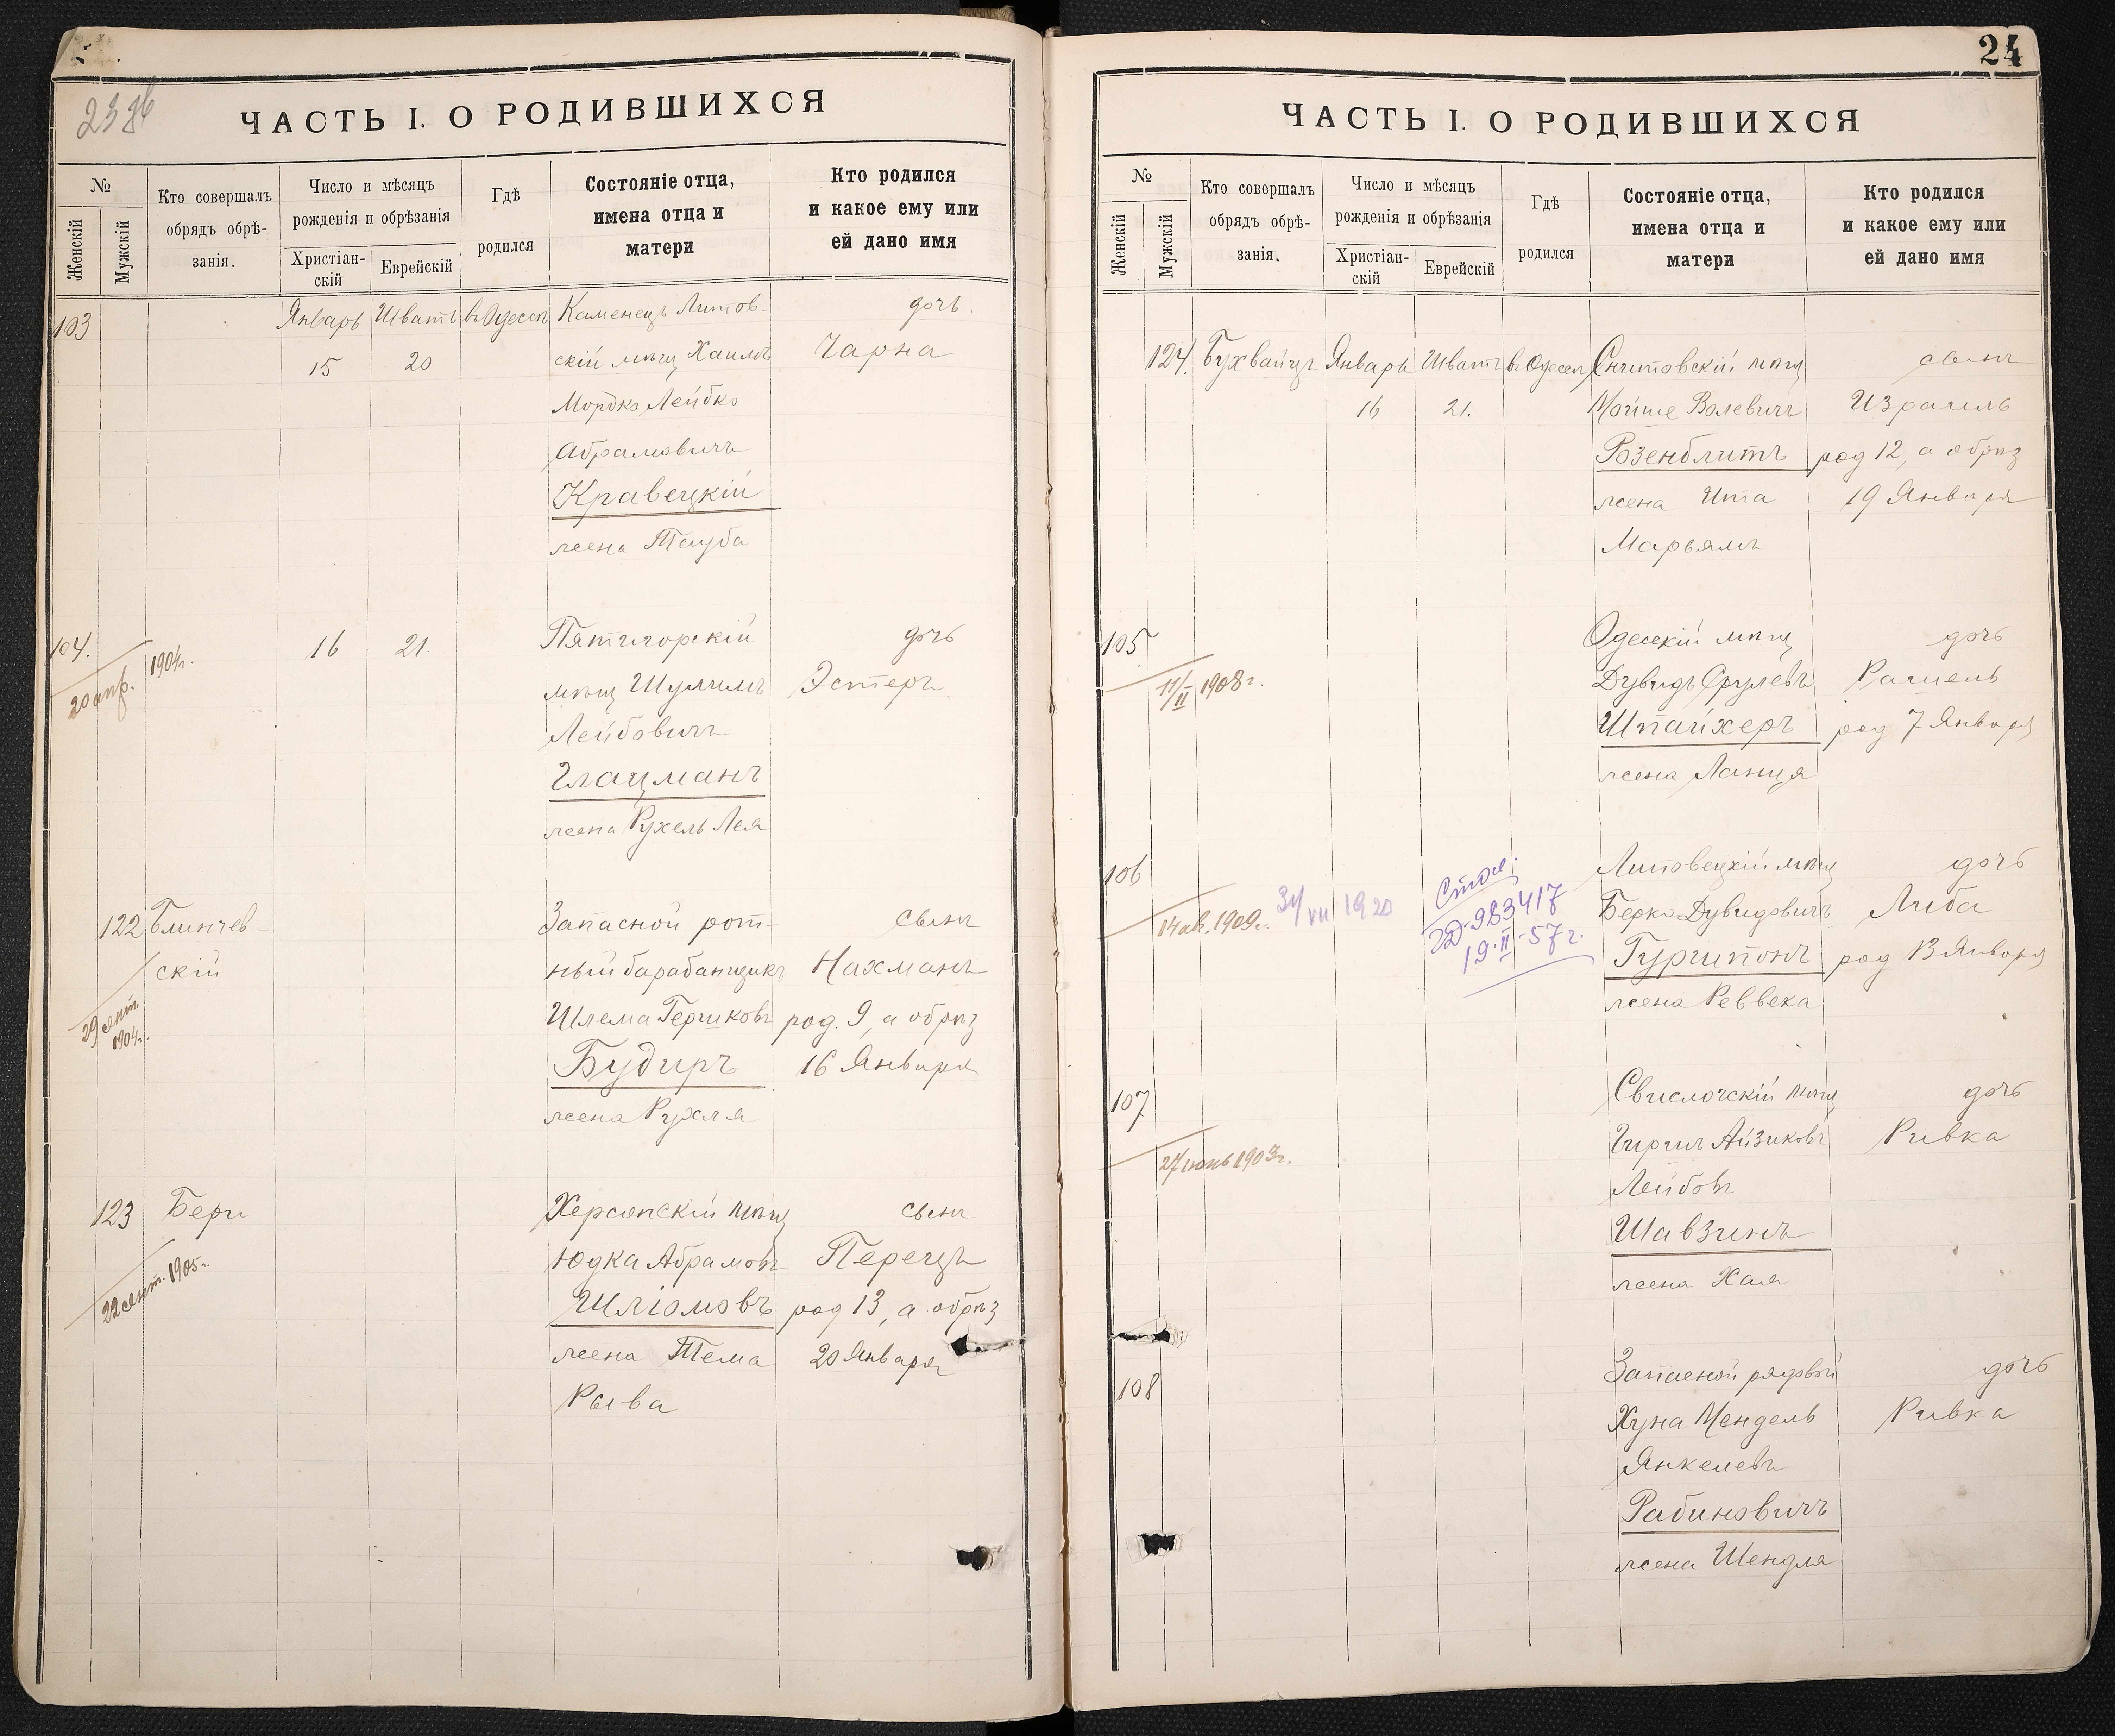 23 об
ЧАСТЬ I. О РОДИВШИХСЯ
№
Женскій
Мужскій
Кто совершалъ
обрядъ обрѣ-
занія.
Число и мѣсяцъ
рожденія и обрѣзанія
Христіан-
скій
Еврейскій
Гдѣ
родился
Состояніе отца,
имена отца и
матери
Кто родился
и какое ему или
ей дано имя
103
Январь Шватъ въ Одессѣ Каменецъ Литов- дочь
15 20 скій мѣщ Хаимъ Чарна
Мордко Лейбко
Абрамовичъ
Кравецкій
жена Тауба
104. 16 21. Пятигорскій дочь
20 апр. 1904г.
мѣщ Шулимъ Эстеръ
Лейбовичъ
Глацманъ
жена Рухель Лея
122 Блинчев- Запасной рот- сынъ
скій ный барабанщикъ Нахманъ
29 сент. 1904г.
Шлема Гершковъ род. 9, а обрѣз
Будиръ 16 Января
жена Рухля
123 Бери Херсонскій мѣщ сынъ
22 сент. 1905г.
Юдка Абрамовъ Перецъ
Шліомовъ род 13, а обрѣз
жена Тема 20 Января
Рыва
24
ЧАСТЬ I. О РОДИВШИХСЯ
№
Женскій
Мужскій
Кто совершалъ
обрядъ обрѣ-
занія.
Число и мѣсяцъ
рожденія и обрѣзанія
Христіан-
скій
Еврейскій
Гдѣ
родился
Состояніе отца,
имена отца и
матери
Кто родился
и какое ему или
ей дано имя
124. Бухвайцъ Январь Шватъ въ Одессѣ Снитовскій мѣщ сынъ
16 21. Мойше Волевичъ Израиль
Розенблитъ род 12, а обрѣз
жена Ита 19 Января
Марьямъ
105 Одесскій мѣщ дочь
11/II 1908г.
Дувидъ Срулевъ Рашель
Шпайхеръ род 7 Января
жена Ланця
106 Липовецкій мѣщ дочь
14 ав. 1909г. 31/VII 1920
ГД-983417
19-II-57г.
Берко Дувидовичъ Либа
Гуршпонъ род 13 Января
жена Реввека
107 Свислочскій мѣщ дочь
27 июнь 1903г.
Гиршъ Айзиковъ Ривка
Лейбовъ
Шавзинъ
жена Хая
108 Запасной рядовой дочь
Хуна Мендель Ривка
Янкелевъ
Рабиновичъ
жена Шендля